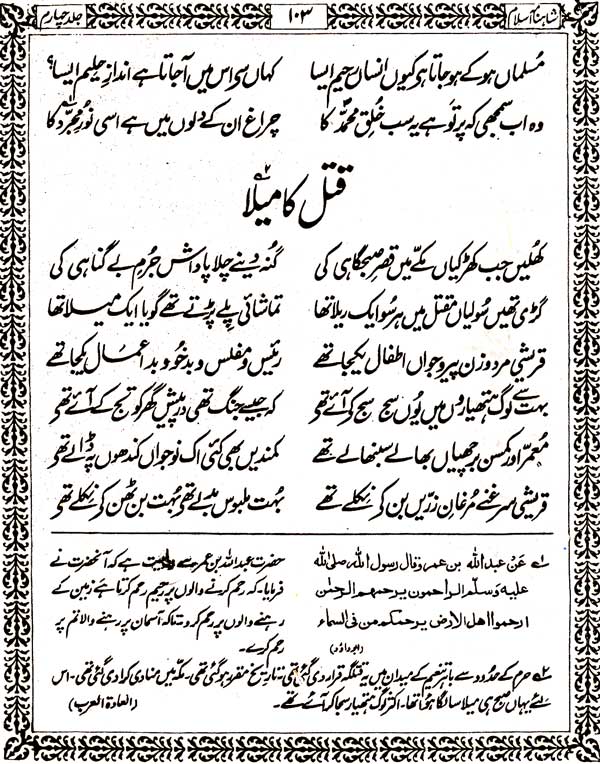 شاہنامۂ اسلام
۱۰۳
جلد چہارم
مسلماں ہو کے ہو جاتا ہی کیوں انساں رحیم ایسا
کہاں سی اس میں آجاتا ہے انداز حلیم ایسا؟
وہ اب سمجھی کہ پرتو ہے یہ سب خُلقِ محمدؐ کا
چراغ ان کے دلوں میں ہے اسی نورِ مجرّد کا
قتل کا میلا
کھلیں جب کھڑکیاں مکّے میں قصرِ صبحگاہی کی
گنہ دینے چلا پاداش جُرمِ بے گناہی کی
گڑی تھیں سُولیاں مقتل میں ہر سُو ایک ریلا تھا
تماشائی پلے پڑتے تھے گویا ایک میلا تھا
قریشی مرد و زن پیر و جواں اطفال یکجا تھے
رئیس و مفلس و بد خُو و بد اعمال یکجا تھے
بہت سے لوگ ہتھیاروں میں یُوں سج سج کو آئے تھی
کہ جیسے جنگ تھی درپیش گھر کو تج کے آئے تھی
مُعمّر اور کمسن برچھیاں بھالے سنبھالے تھے
کمندیں بھی کئی اک نوجواں کندھوں پہ ڈالے تھی
قریشی سرغنے مُرغانِ زرّیں بن کو نکلے تھے
بہت ملبوس بہت بن ٹھن کو نکلے تھی
۱؎ عَنْ عبد الله بن عمر قال رسول الله صلی الله
علیه وسلم الراحمون یرحمهم الرحمٰن
ارحموا اهل الارض یرحمکم من فی السماء
(ابوداؤد)
حضرت عبداللہ بن عمر سے روایت ہے کہ آنحضرت نے
فرمایا۔ کہ رحم کرنے والوں پر رحیم رحم کرتا ہے زمین کے
رہنے والوں پر رحم کرو تاکہ آسمان پر رہنے والا تم پر
رحم کرے۔
۲؎ حرم کے حدود سے باہر تنعیم کے میدان میں یہ قتلگہ قرار دی گئی تھی۔ تاریخ مقرر ہو گئی تھی۔ مکّہ میں منادی کرا دی گئی تھی۔ اس
لئے یہاں صبح ہی میلا سا لگا ہوا تھا۔ اکثر لوگ ہتھیار سجا کر آئے تھے۔
(العادة العرب)